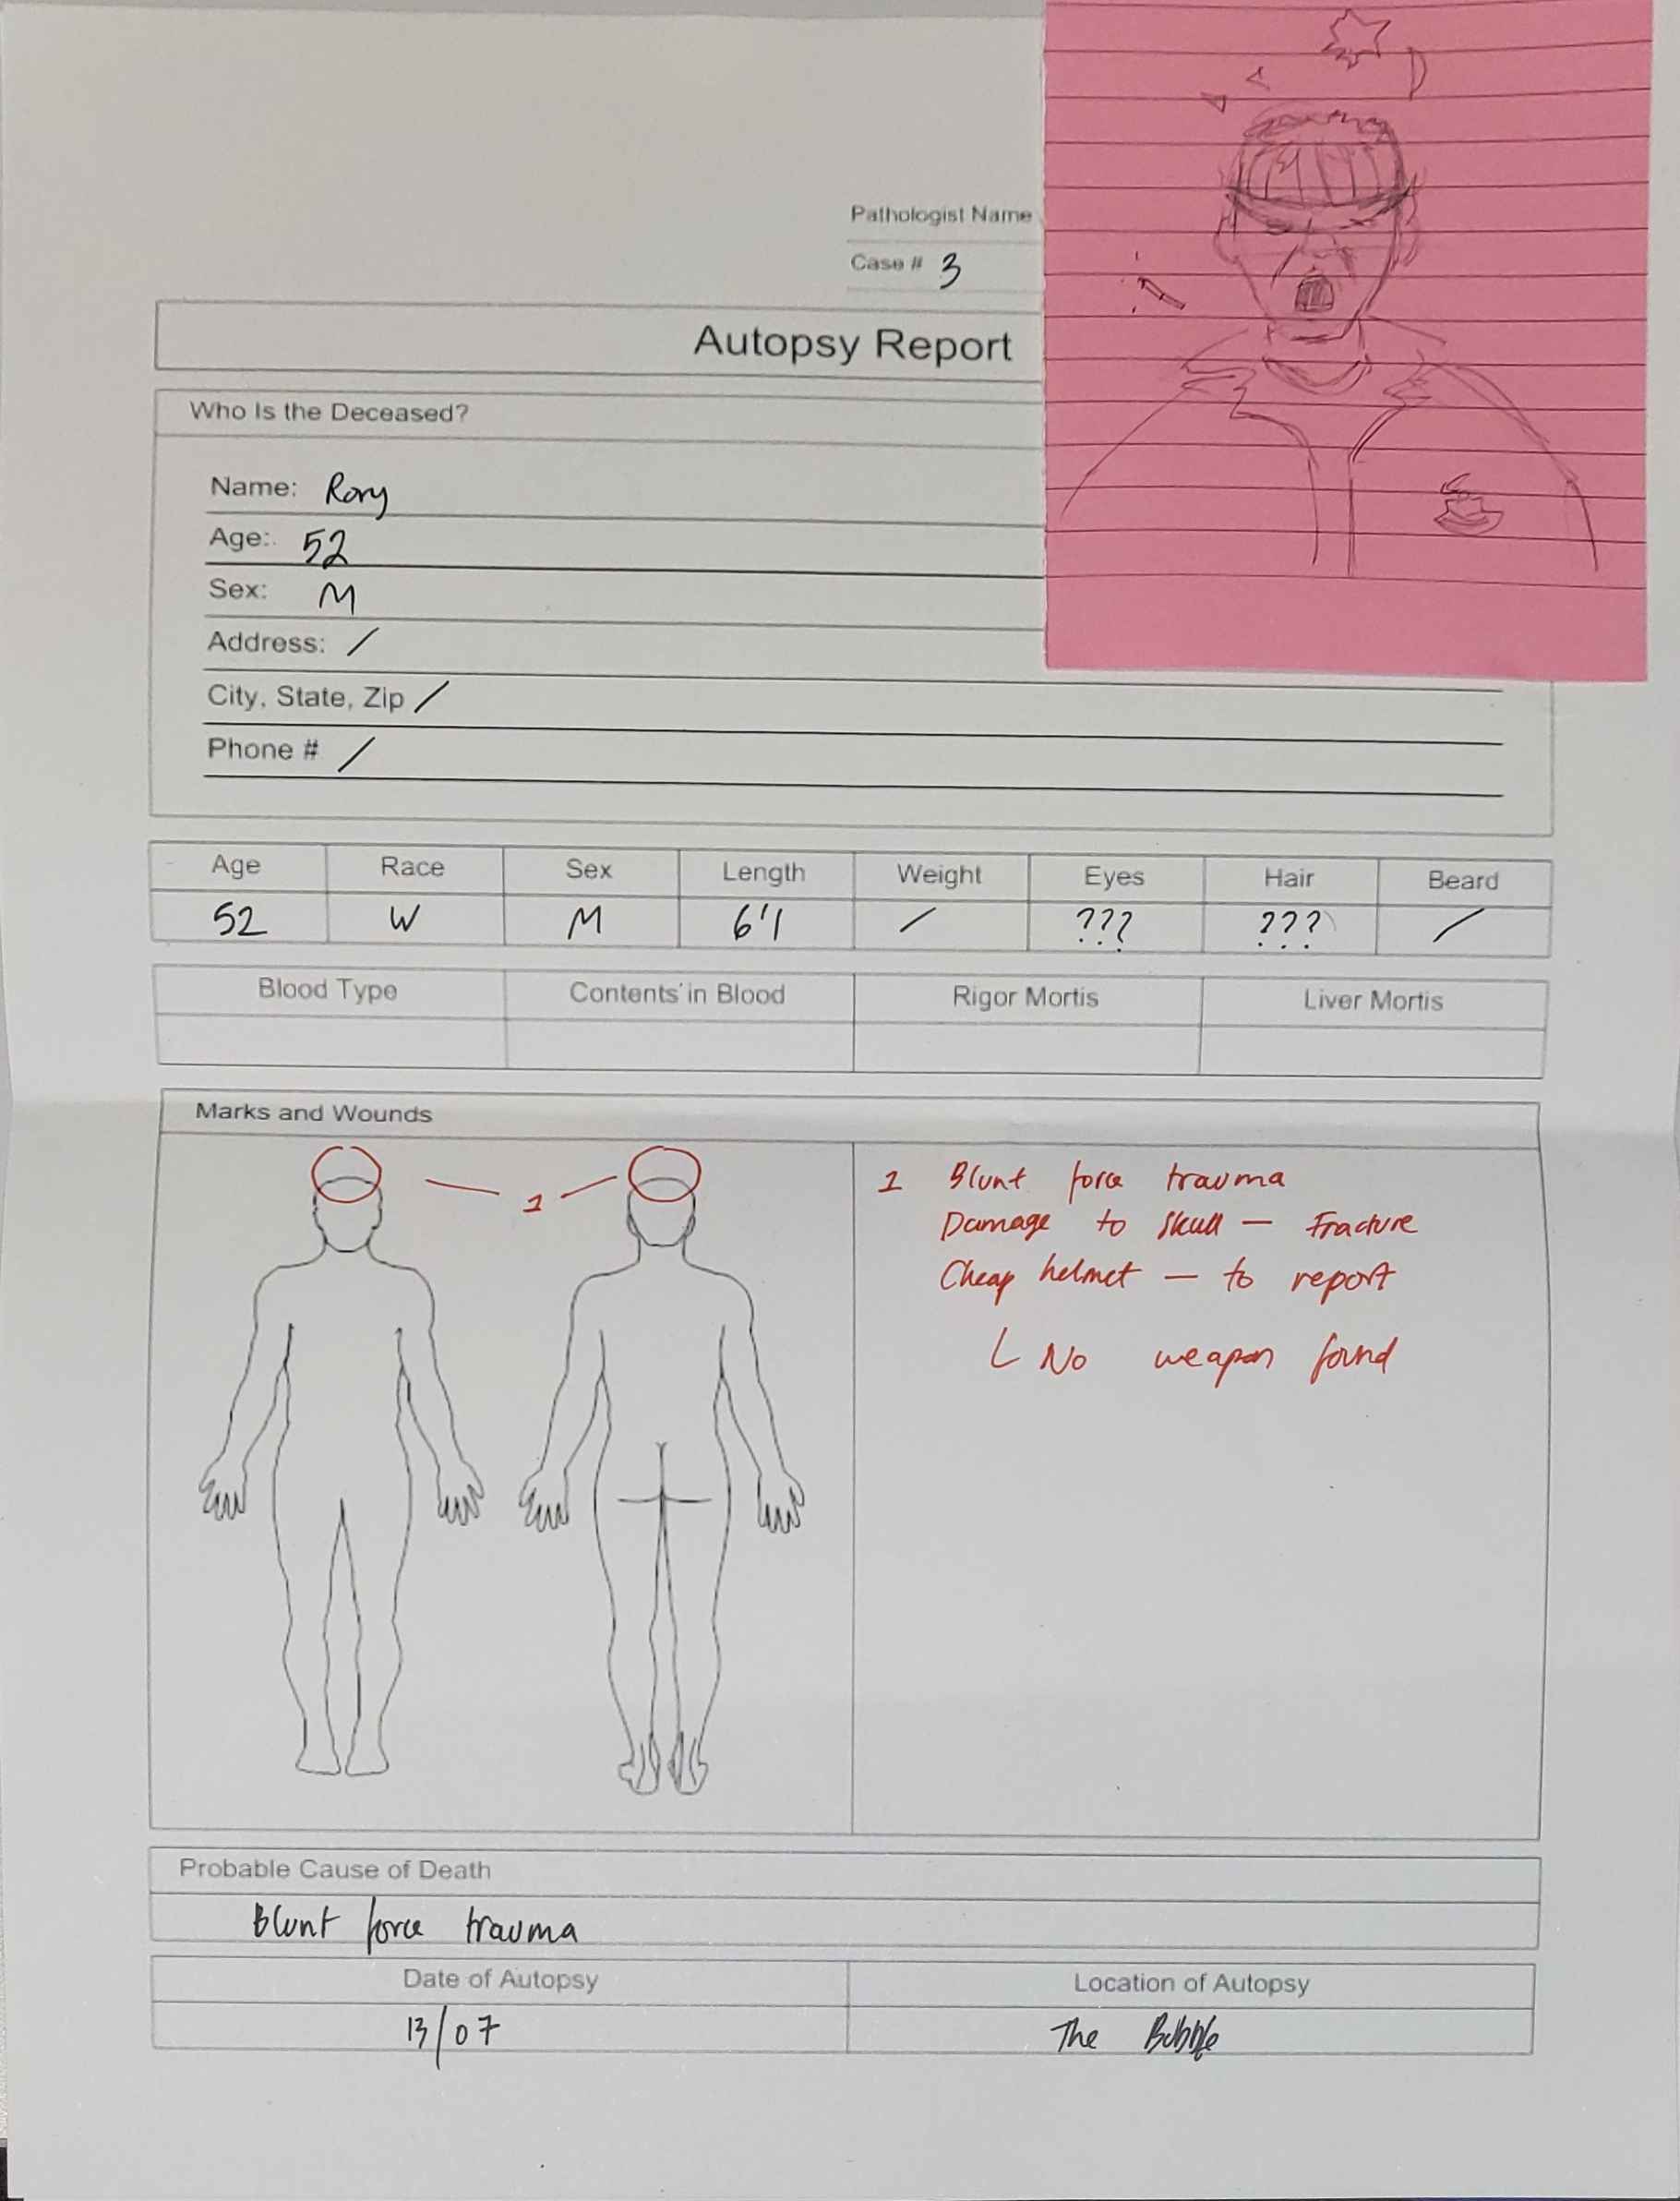 Pathologist Name
Case # 3
Autopsy Report
Who Is the Deceased?
Name: Rory
Age: 52
Sex: M
Address: /
City, State, Zip /
Phone # /
Age Race Sex Length Weight Eyes Hair Beard
52 W M 6'1 / ??? ??? /
Blood Type Contents in Blood Rigor Mortis Liver Mortis
Marks and Wounds
1
1 Blunt force trauma
Damage to skull — Fracture
Cheap helmet — to report
No weapon found
Probable Cause of Death
Blunt force trauma
Date of Autopsy Location of Autopsy
13/07 The Bubble